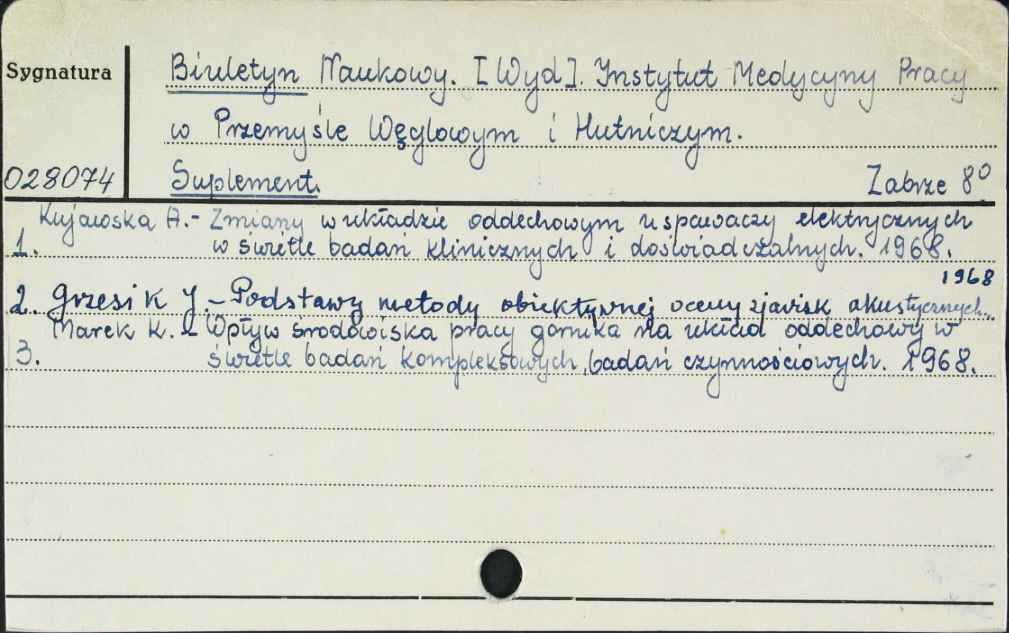 Sygnatura
Biuletyn Naukowy. [Wyd]. Instytut Medycyny Pracy
w Przemyśle Węglowym i Hutniczym.
028074
Suplement.
Zabrze 8°
Kujawska A. - Zmiany w układzie oddechowym u spawaczy elektrycznych
1. w świetle badań klinicznych i doświadczalnych. 1968.
1968
2. Grzesik J. - Podstawy metody obiektywnej oceny zjawisk akustycznych..
Marek K. - Wpływ środowiska pracy górnika na układ oddechowy w
3. świetle badań kompleksowych, badań czynnościowych. 1968.